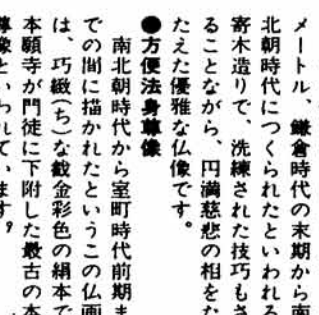 メートル、鎌倉時代の末期から南
北朝時代につくられたといわれる
寄木造りで、洗練された技巧もさ
ることながら、円満慈悲の相をた
たえた優雅な仏像です。
●方便法身尊像
南北朝時代から室町時代前期ま
での間に描かれたというこの仏画
は、巧緻(ち)な截金彩色の絹本で
本願寺が門徒に下附した最古の本
尊像といわれています。